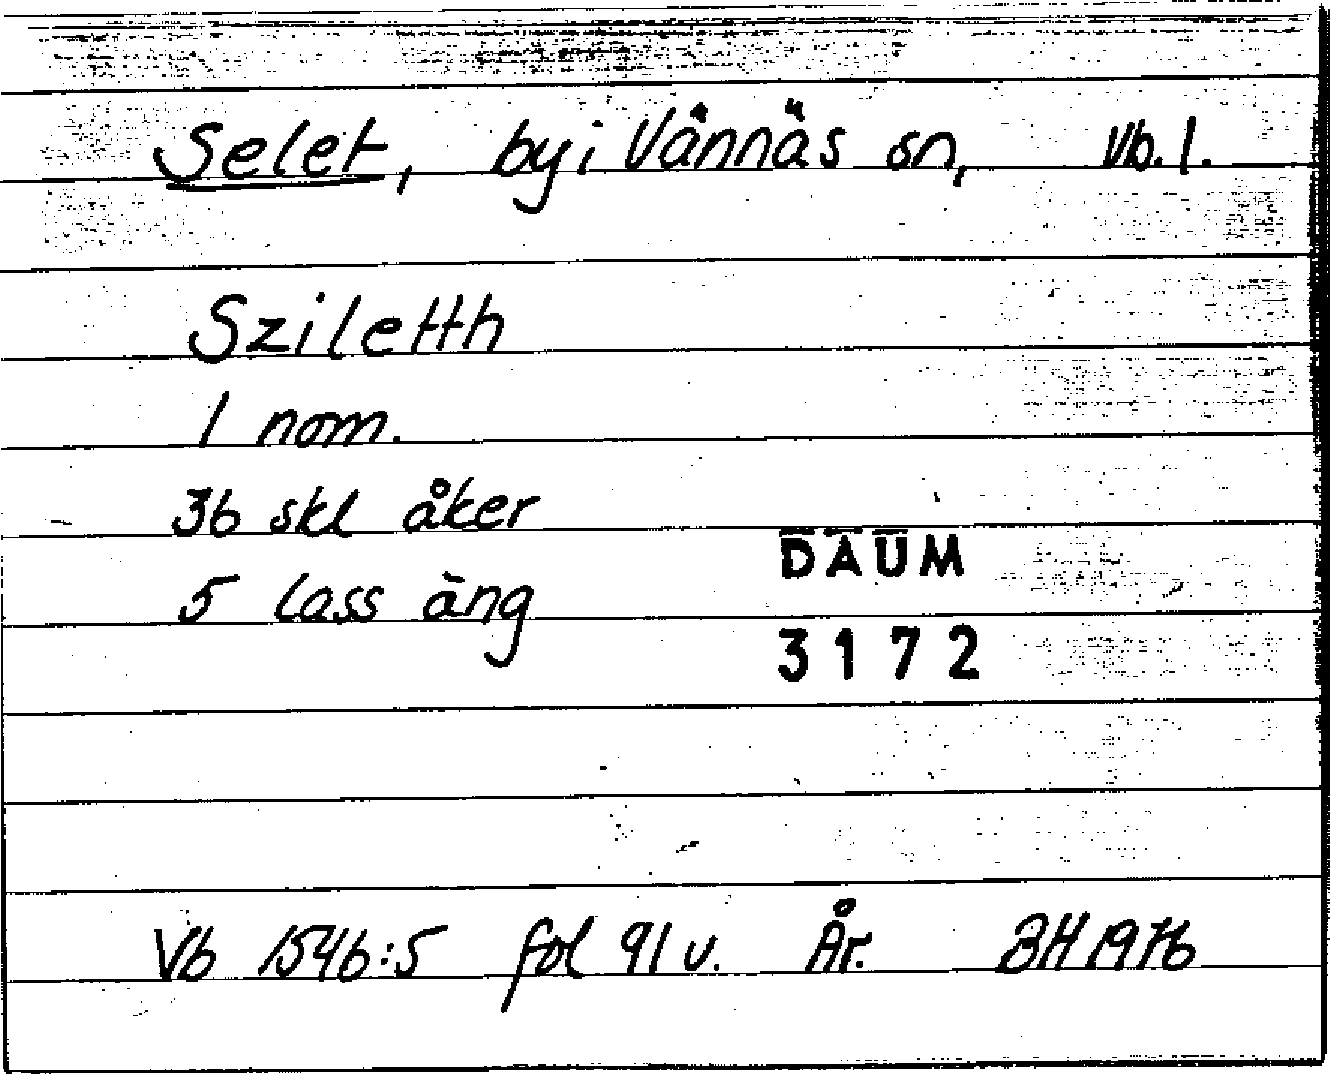 Selet, by i Vännäs sn, Vb. l.
Sziletth
1 nom.
36 skl åker
5 lass äng
DAUM
3172
Vb 1546:5 fol 91 v. År. BH 1976